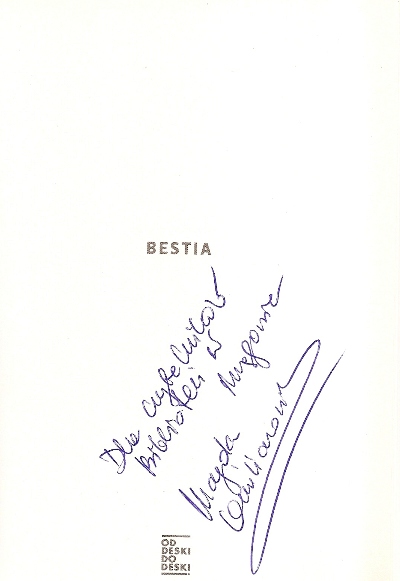 BESTIA
Dla czytelników
Biblioteki w
Magda
OD
DESKI
DO
DESKI